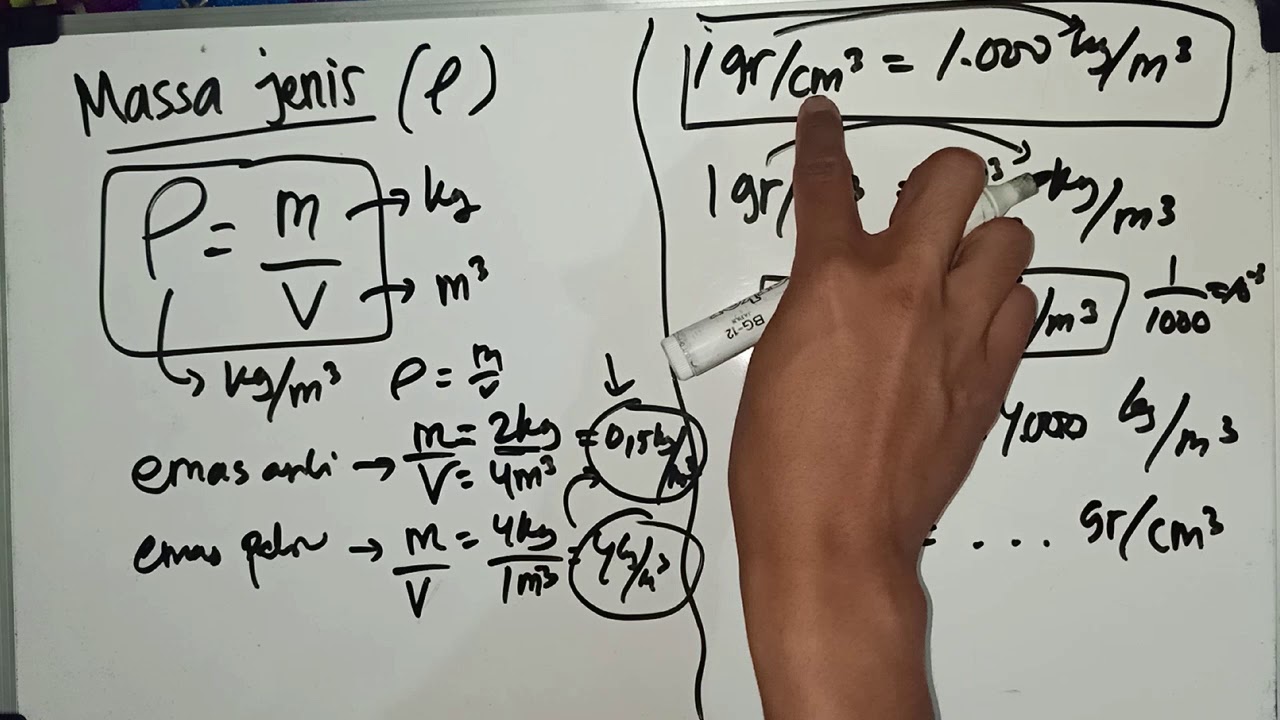 Massa jenis (ρ)
ρ = m/V
→ kg
→ m³
→ kg/m³
ρ = m/v
emas asli → m/V = 2kg/4m³ = 0,5kg/m³
emas palsu → m/V = 4kg/1m³ = 4kg/m³
1 gr/cm³ = 1.000 kg/m³
1 gr/ kg/m³
/m³
1/1000 = 10⁻³
kg/m³
= ... gr/cm³
BG-12
JAPAN